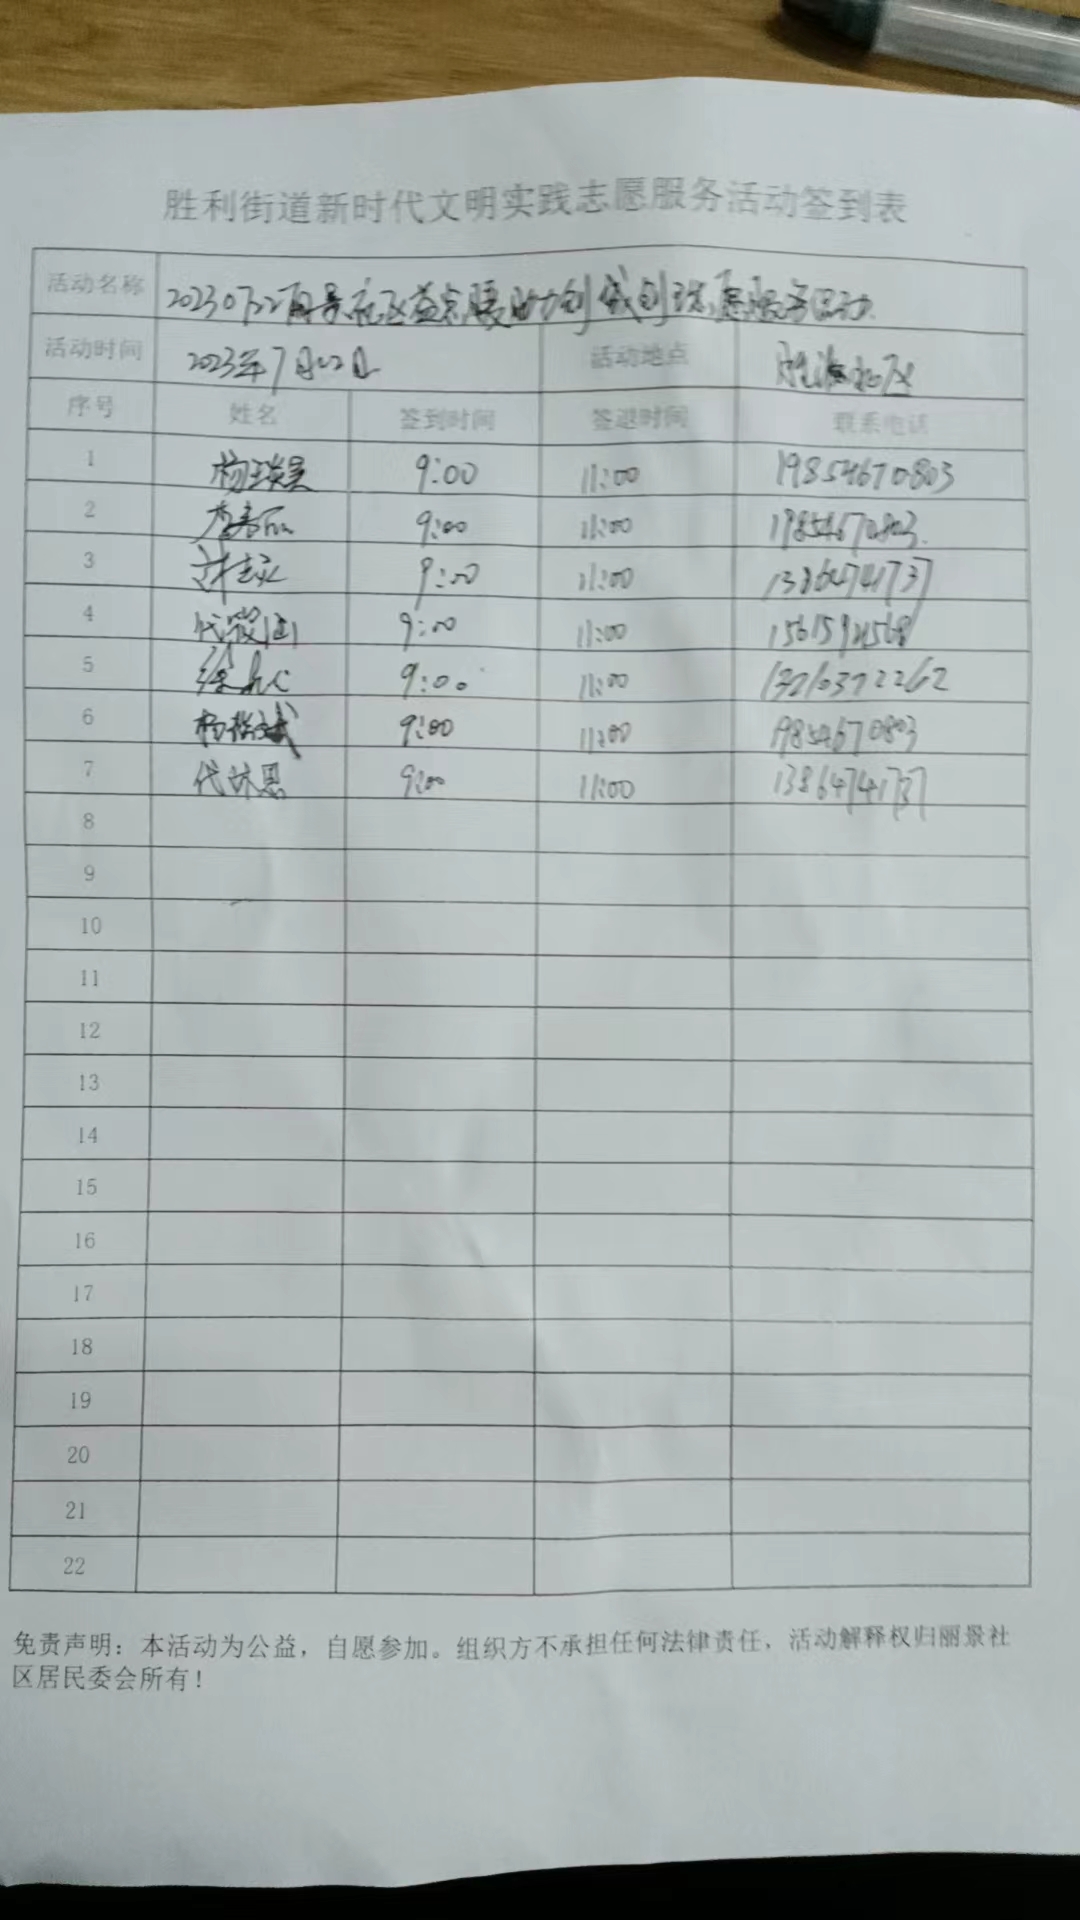 胜利街道新时代文明实践志愿服务活动签到表
活动名称 20230722丽景社区益点暖助力创城创建志愿服务活动
活动时间 2023年7月22日 活动地点
序号 姓名 签到时间 签退时间 联系电话
1 9:00 11:00 19854670803
2 9:00 11:00 19854670803
3 9:00 11:00 13864741737
4 9:00 11:00
5 9:00 11:00 13210372262
6 9:00 11:00 19854670803
7 9:00 11:00 13864741737
8
9
10
11
12
13
14
15
16
17
18
19
20
21
22
免责声明：本活动为公益，自愿参加。组织方不承担任何法律责任，活动解释权归丽景社
区居民委会所有！